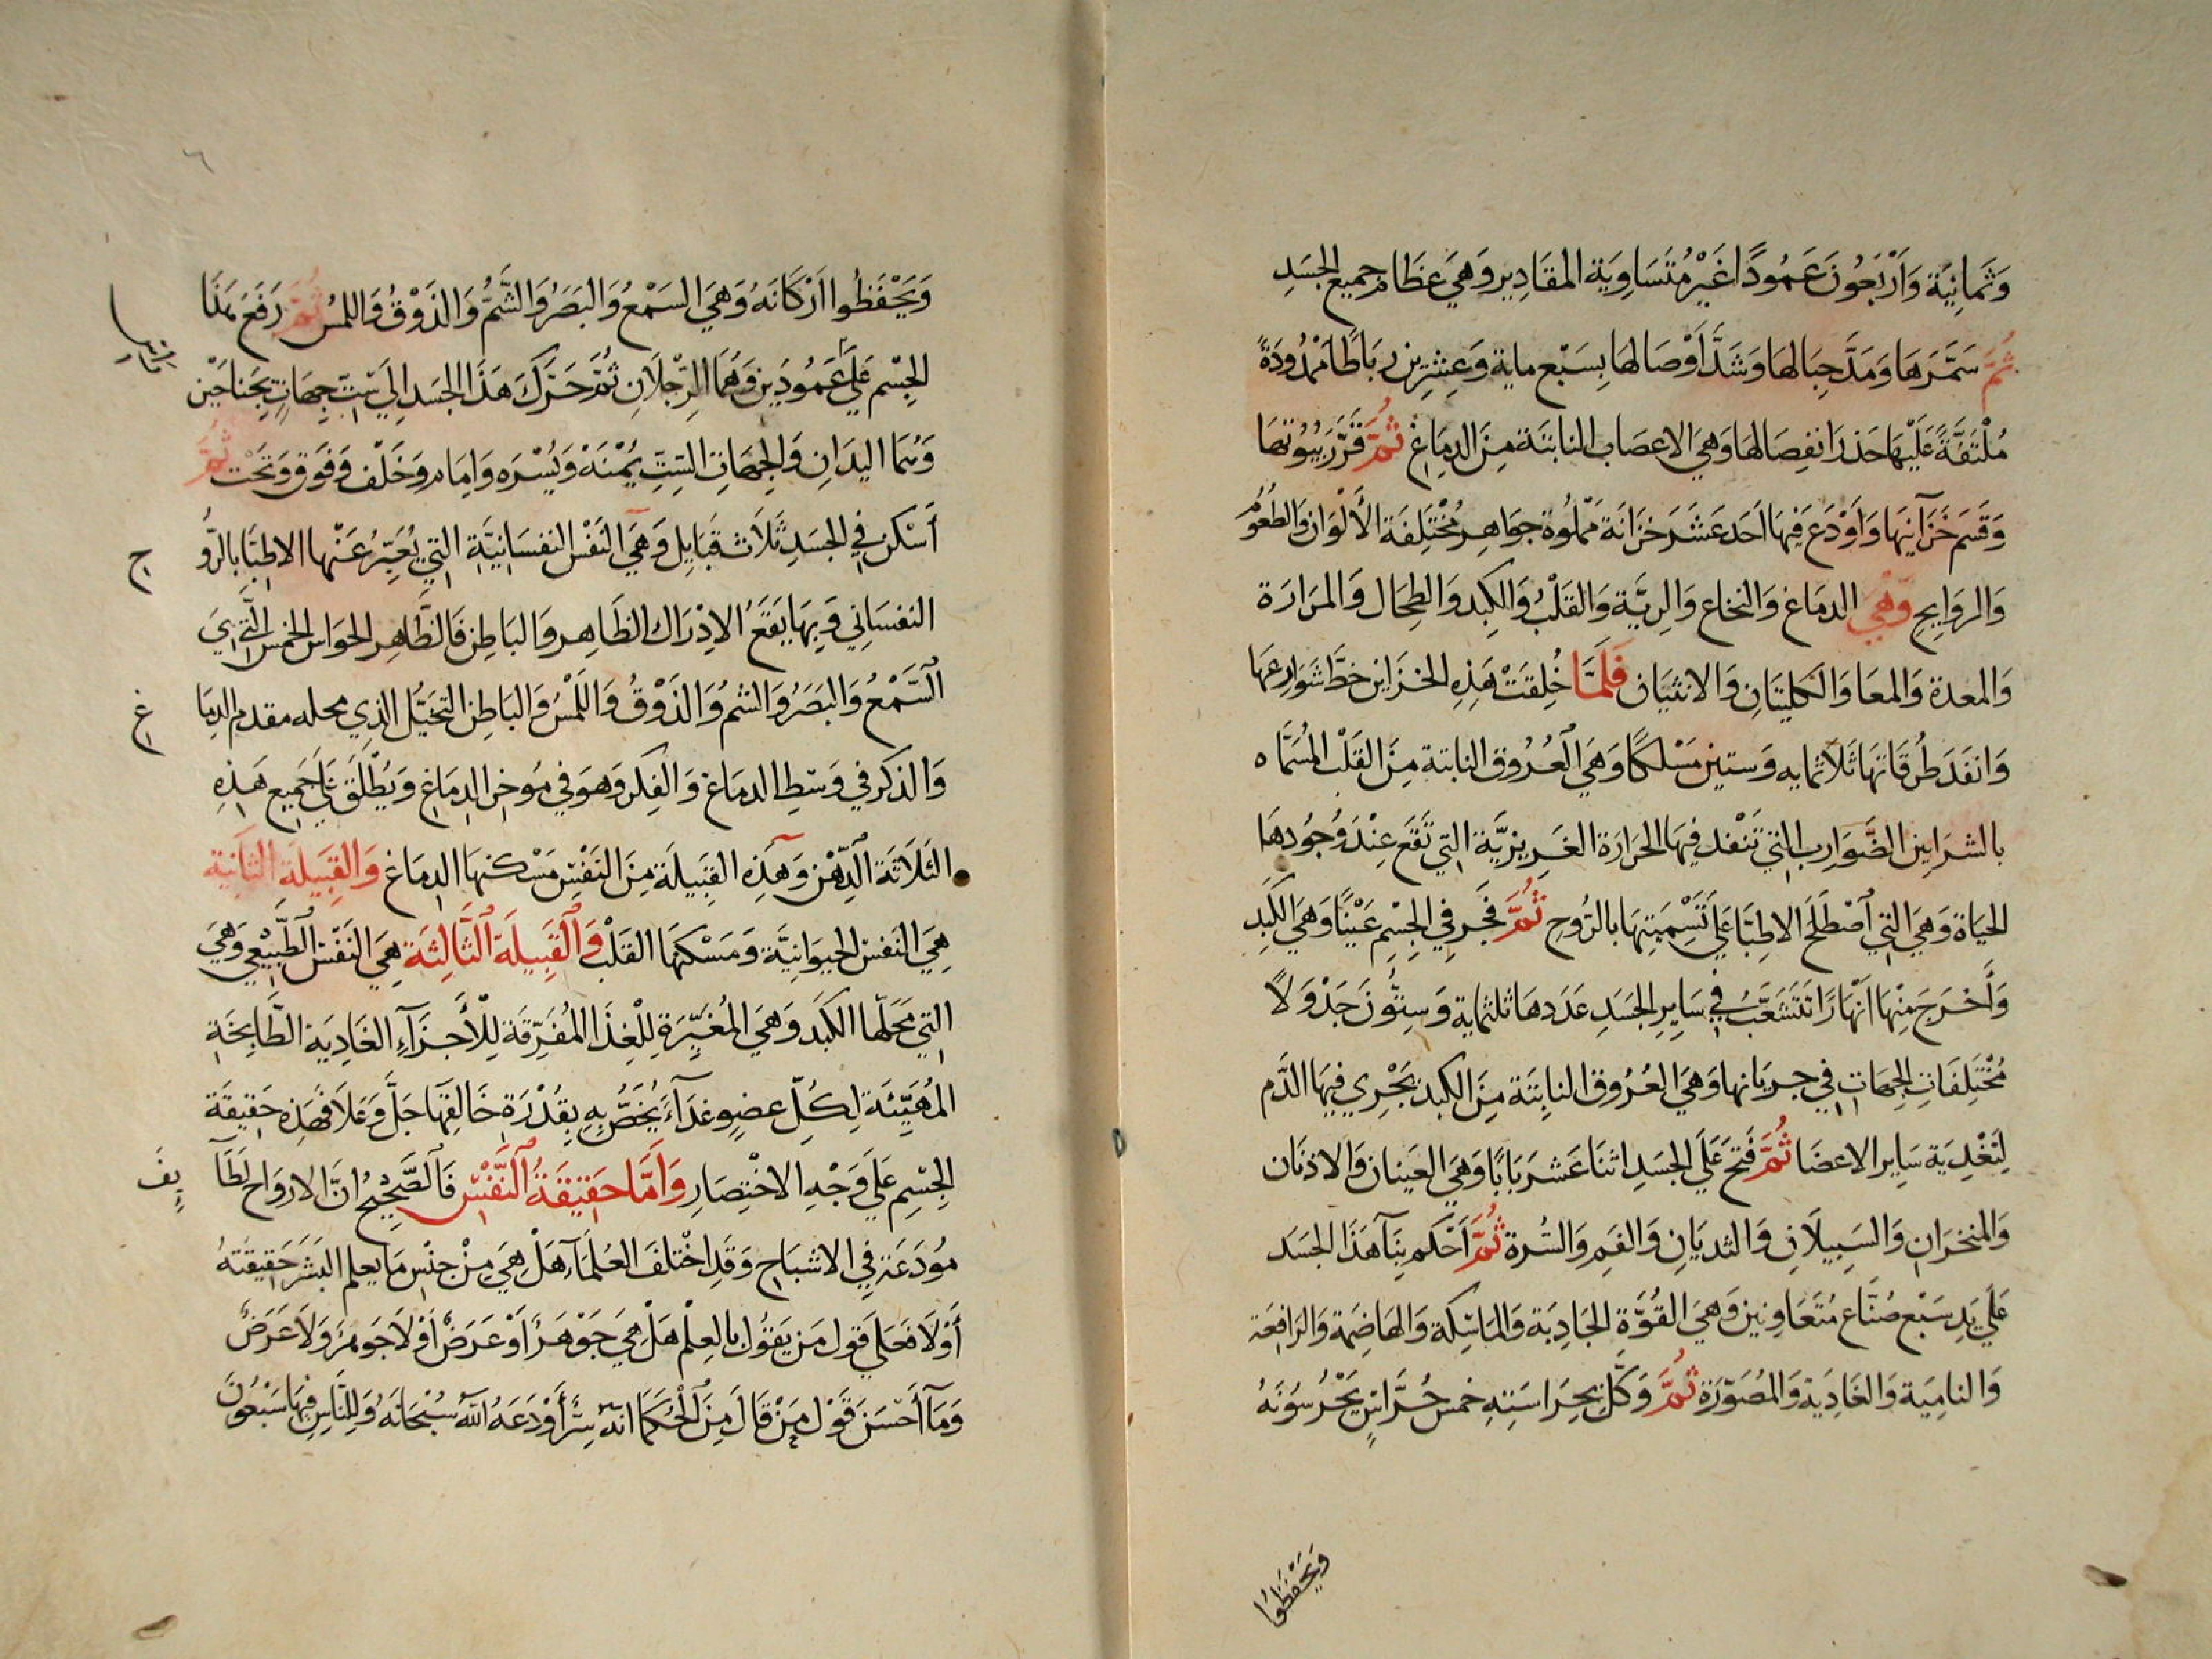 وَثَمانِيَة وَاَرْبَعُونَ عَمُودًا غَيْرْ مُتَسَاوِيَة المقَادِير وَهِيَ عِظَام جميع الجَسَدِ
ثمَّ سَمَّرَهَا وَمَدَّ حِبَالهَا وَشَدَّ اَوْصَالهَا بِسَبْع ماية وَعِشِرِين رِبَاطًا مَمْدُودَةً
مُلْتَفَّةً عَلَيْهَا حَذر انفِصَالهَا وَهِيَ الاعصَاب النابتَة مِنَ الدِمَاغِ ثمَّ قَرَّرَ بيُوتهَا
وَقَسَم خَزَآيِنهَا وَاَوْدَعَ فِيهَا اَحَد عَشَرَ خزَانَة مملُوة جوَاهِر مُخْتَلِفَة الأَلْوَان وَالطعُومُ
وَالروَايِحِ وَهِيَ الدمَاغ وَالنخَاع وَالرِيَّة وَالقَلْبُ وَالكِبد وَالطِحَال وَالمرَارَة
وَالمعدة وَالمعَا وَالكليتَانِ وَالانثيَان فَلَمَّا خُلِقَتْ هَذِهِ الخزَاين خَطَّ شوَارعهَا
وَانفَدَ طرقَاتهَا ثَلَاثمايه وَستين مَسْلكًا وَهيَ العُرُوق النابتة مِنَ القَلْب المُسَمَّاه
بالشرَايِين الضَّوَارب التي تَنْفد فيهَا الحرَارَة الغَرِيزِيَّة التي تَقَع عِنْدَ وُجُودهَا
الحيَاة وَهِيَ التي اَصْطَلَحَ الاطِبَّا عَلَي تَسْمِيَتِهَا بالرُوحِ ثمَّ فَجَّرَ فِي الجِسْمِ عَيْنًا وَهِيَ الكَبِدِ
وَأَخْرَجَ مِنْهَا اَنْهَارًا تَتَشَعَّبُ في سَايِرِ الجَسَدِ عَدَدهَا ثلثماية وَسِتُّونَ جَدْوَلاً
مُخْتَلِفَاتِ الجِهَاتِ في جريَانهَا وَهِيَ العُرُوق النابِتَة مِنَ الكبد يَجْرِي فِيهَا الدَّم
لِتَغْذِيَة سَايِر الاعضَا ثُمَّ فَتَحَ عَلَي الجَسَدِ اثنَا عَشَر بَابًا وَهِيَ العَينان وَالاذنَان
وَالمنخرَان وَالسَبِيلَانِ وَالثديَانِ وَالفَمِ وَالسُّرة ثُمَّ اَحْكم بِنَآ هَذَا الجَسَد
عَلَي يَدِ سَبْع صُنَّاع مُتَعَاوِنِين وَهِيَ القُوَّةِ الجَادِبَة وَالمَاسِكَة وَالهَاضِمَة وَالدَافِعَة
وَالنامِيَة وَالغَادِيَة وَالمُصَوِّرَة ثُمَّ وَكَّل بِحِرَاسَتِهِ خمس حُرَّاسٍ يَحْرُسُوَنَهُ
وَيَحْفَظُوا
وَيَحْفَظُوا اَرْكَانَهُ وَهِيَ السَمْعُ وَالبَصَرُ وَالشَّمُّ وَالذَوْقُ وَاللمسُ ثُمَّ رَفَعَ هَذَا
الجِسْم عَلَي عَمُودَيِن وَهُمَا الرِّجْلَان ثُمَّ حَرَّكَ هَذَا الجَسَد اِلَي سِتِّ جِهَاتٍ بِجَنَاحَيْن
وَهُمَا اليدَانِ وَالجِهَاتِ السِتِّ يُمْنَهْ وَيُسْرَه وَامَام وَخَلْف وَفَوق وَتَحْت ثُمَّ
أَسْكن في الجَسَدِ ثَلَاث قَبَايِل وَهيَ النَفْس النفسَانِيَّةِ التي يُعَبِّرُ عَنْهَا الاطِبَّا بالرُّو ح
النفسَاني وَبِهَا يَقَعُ الادْرَاك الظَاهِر وَالبَاطِن فَالظَّاهِر الحوَاس الخمس التي
اَلسَّمْعُ وَالبَصَرُ وَالشمُ وَالذَوْقُ وَاللَمْسُ وَالبَاطِن التخَيُّل الذِي محله مقدم الدِمَا غ
وَالذكر في وَسَطِ الدمَاغ وَالفِكر وَهوَ في مُوخر الدِمَاغ وَيُطْلَق عَلَي جَمِيع هَذِهِ
الثَلَاثَة الذِّهْن وَهَذِه القَبِيلَة مِنَ النَفْسِ مَسْكنهَا الدِمَاغ وَالقبِيلَة الثانِيَة
هِيَ النَفس الحيوَانِيَّة وَمَسْكنهَا القَلْب وَاَلْقَبِيلَة اَلثَّالِثَة هِيَ النَفْس الطَّبِيعِي وَهِيَ
التي مَحَلّهَا الكَبَد وَهيَ المُغَيِّرَة لِلْغِذَا المُفَرِّقَة لِلْأَجْزَآءِ الغَادِيَة الطَّابِخَة
المُهَيِّئَة لِكُلِّ عضِوٍ غدَآءَ يُخَصُّ بِهِ بِقُدْرَةِ خَالِقِهَا جَلَّ وَعَلَا فَهَذِه حَقِيقَة
الجِسْمِ عَلَي وَجْهِ الاخْتِصَارِ وَاَمَّا حَقِيقَةُ اَلنَّفْسِ فَاَلصَّحِيحُ انَّ الارْوَاح لَطَآ يِفَ
مُودَعَة فِي الاشبَاح وَقَدِ اخْتلَفَ العُلَمَآء هَلْ هِيَ مِنْ جِنْسِ مَا يعلم البَشَر حَقِيقَتهُ
أَوْلَا فَعَلَي قَول مَن يَقُول بالعِلْم هَلْ هِيَ جَوْهَر أَوْ عَرَضْ اَوْ لَا جَوهَر وَلَا عَرَضْ
وَمَآ أَحْسَنَ قَوْل مَنْ قَالَ مِنَ اَلْحُكَمَا انَهُ سِرٌّ أَوْدَعَهُ اَللّهُ سُبْحَانَهُ وَلِلنَّاسِ فِيهَا سَبْعُونَ